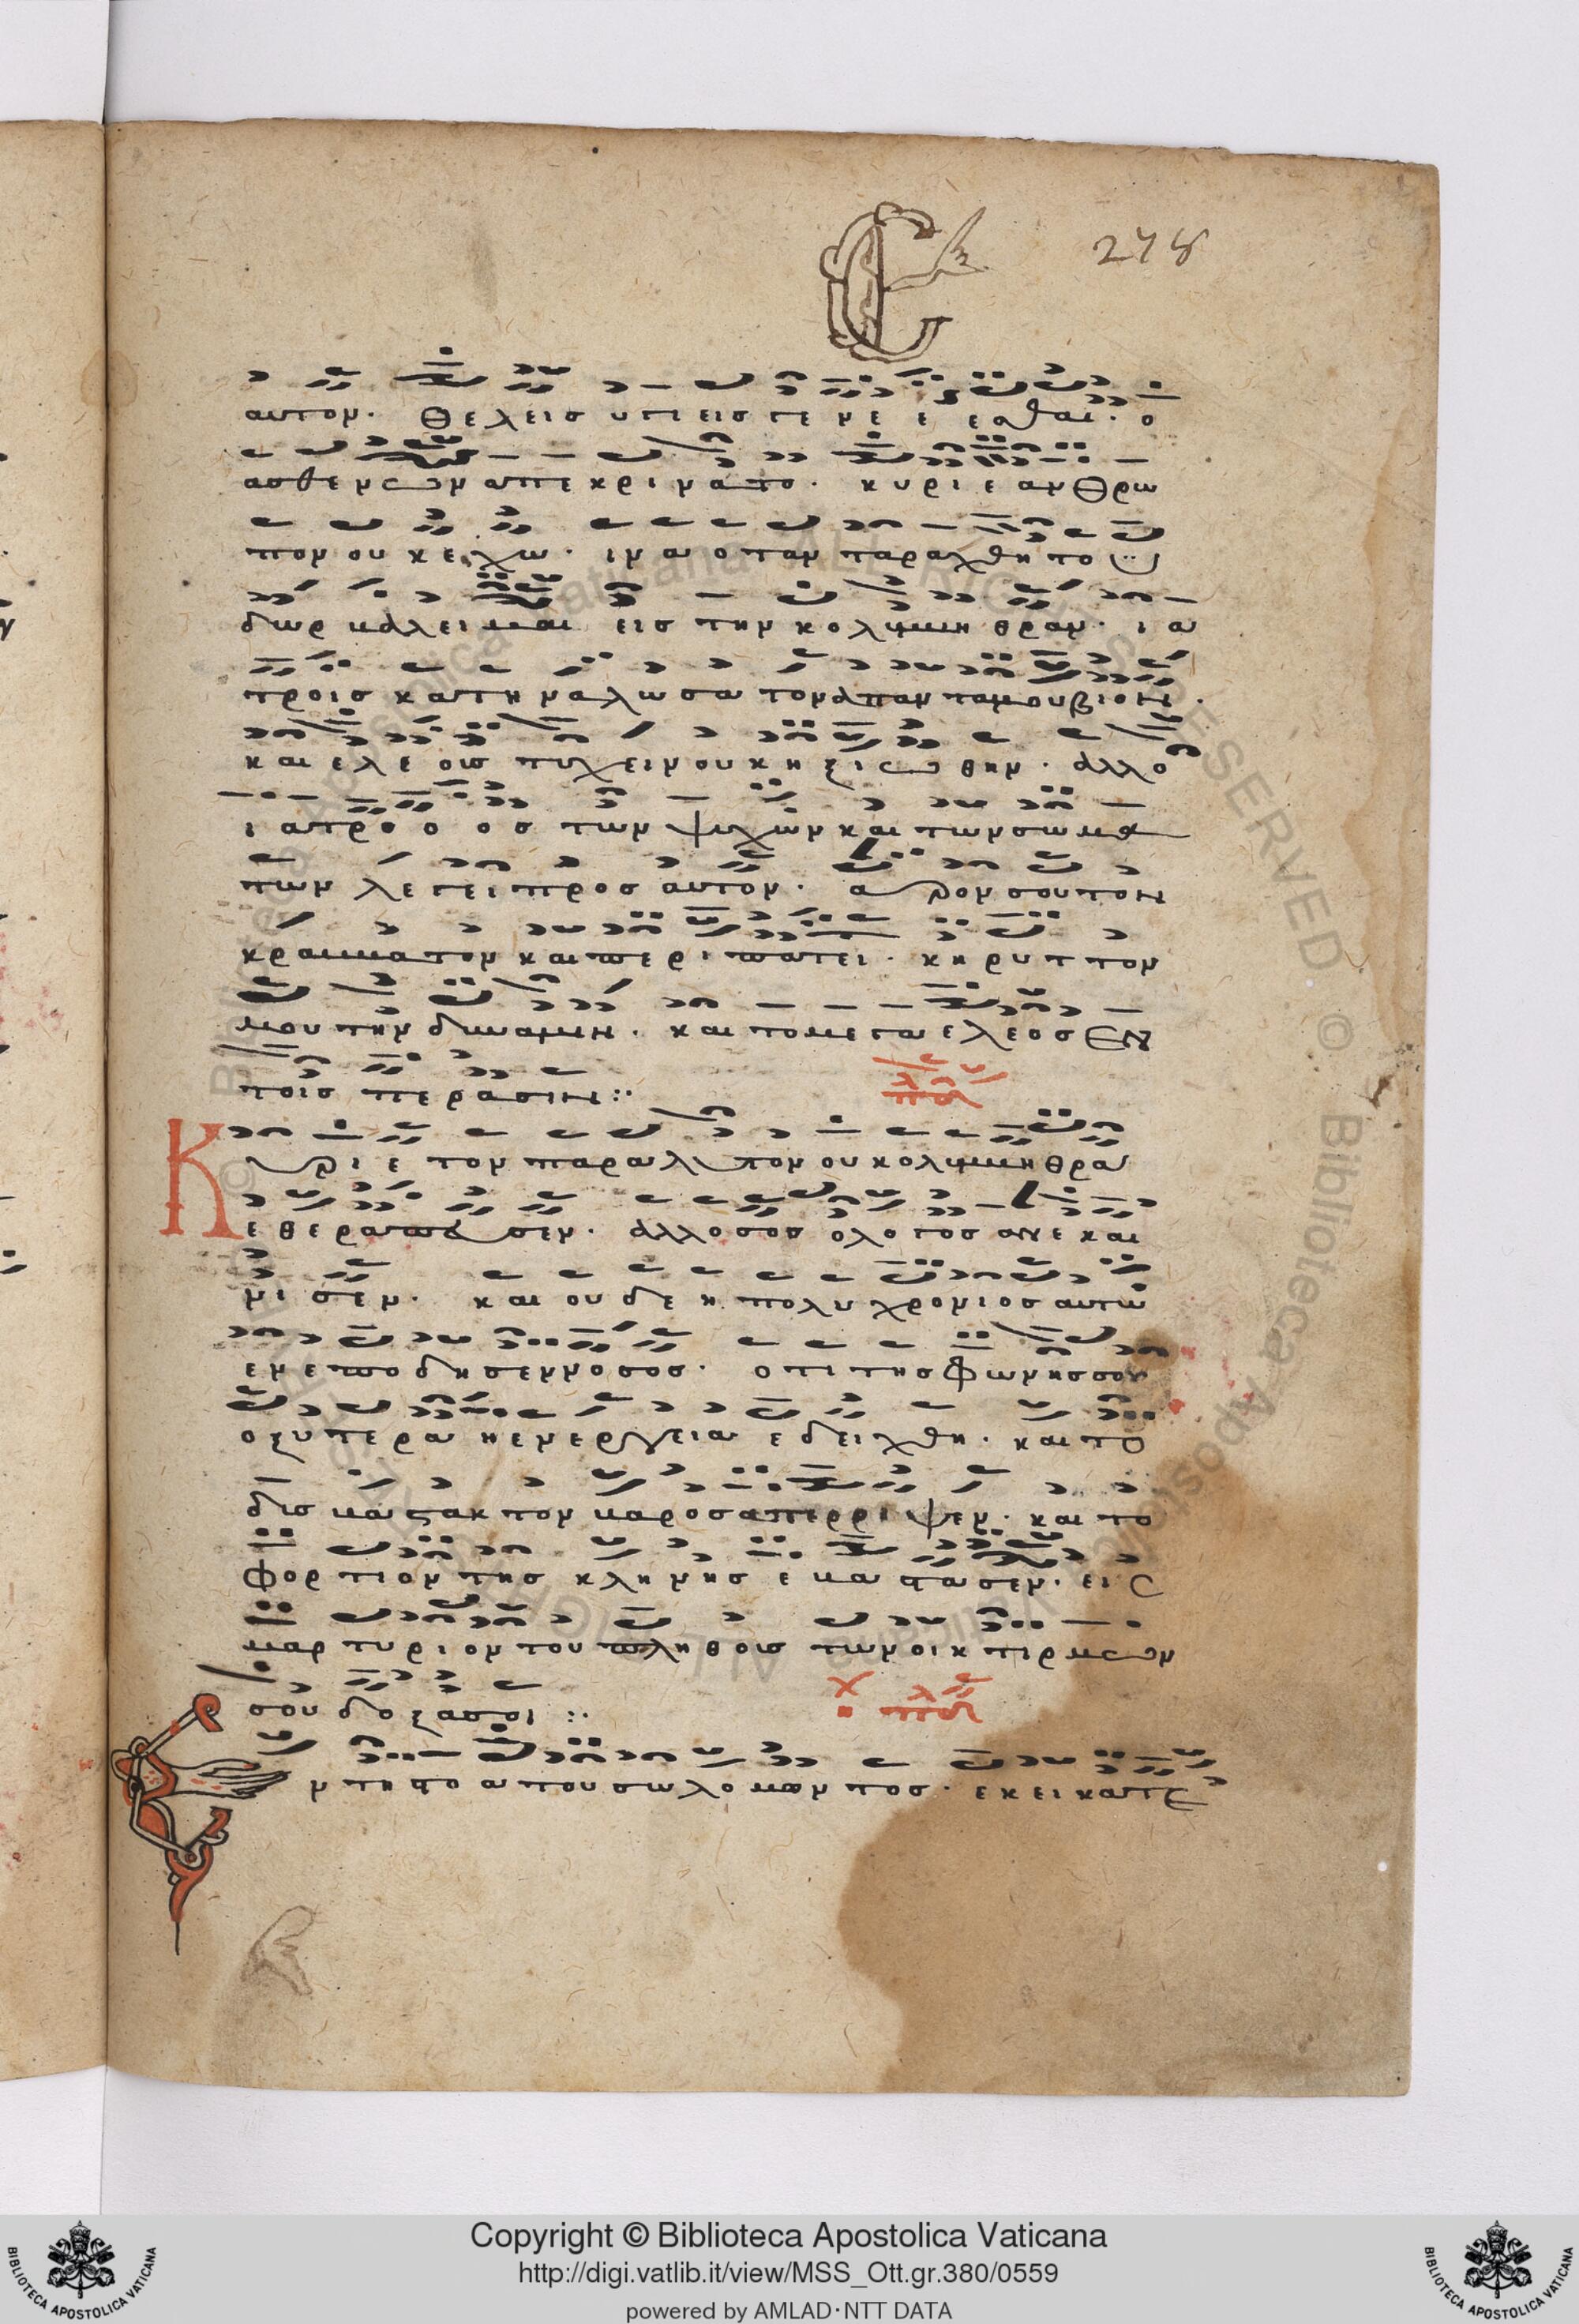 278
αυτον. θελεις υγιεις γενεεεσθαι. ο
ασθενων απεκρινατο. κυριε ανθρω
πον ουκ εχω. ινα οταν ταραχθη το υ
δωρ βαλει με εις την κολυμβηθραν. ια
τροις κατηναλωσα τον απαντα μου βιον.
και ελεους τυχειν ουκ ηξιωθην. αλλο
ιατροοος των ψυχων και των σωμα
των λεγει προς αυτον. αρον σου τον
κραββατον και περιπατει. κηρυττον
μου την δυναμιν. και το μεγα ελεος εν
τοις περασιν:·
Κυριε τον παραλυτον ου κολυμβηθρα
εθεραπευσεν. αλλ ο σος ολογος ανεκαι
νισεν. και ουδε η πολυχρονιος αυτω
ενεποδησεν νοσος. οτι της φωνης σου
οξυτερα η ενεργεια εδειχθη. και το
δισβαστακτον βαρος απερριψεν. και το
φορτιον της κληνης εβαστασεν. εις
μαρτυριον του πληθους των οικτιρμων
σου δοξα σοι:·
Εν τη στοα του σωλομωντος. εκει κατε
Copyright © Biblioteca Apostolica Vaticana
http://digi.vatlib.it/view/MSS_Ott.gr.380/0559
powered by AMLAD·NTT DATA
BIBLIOTECA APOSTOLICA VATICANA
BIBLIOTECA APOSTOLICA VATICANA